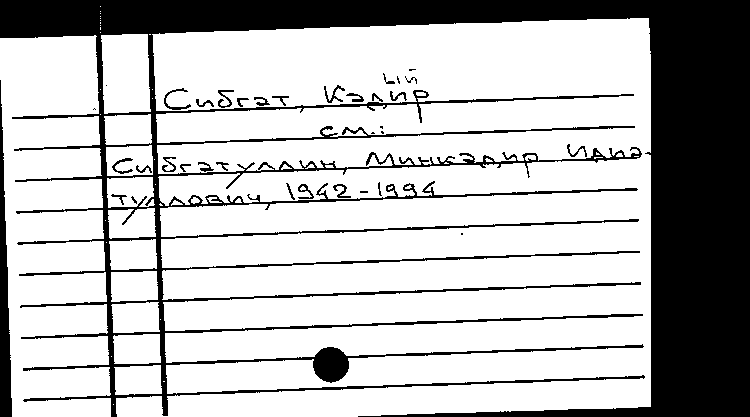 ый
Сибгат, Кадир
см.:
Сибгатуллин, Минкадир Идиа-
туллович, 1942-1994